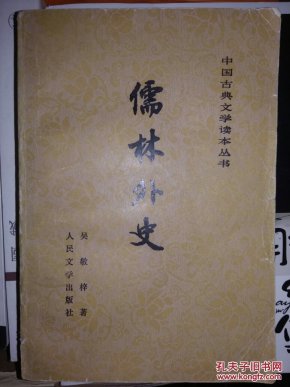 中国古典文学读本丛书
儒林外史
吴敬梓著
人民文学出版社
孔夫子旧书网